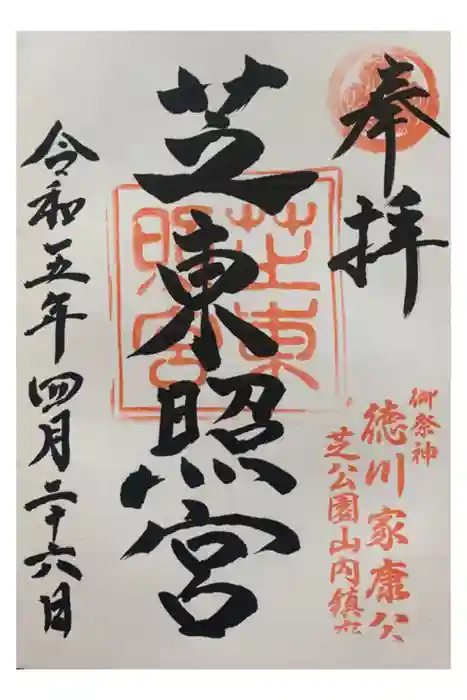 奉拝
御祭神
徳川家康公
芝公園山内鎮座
芝東照宮
芝東
照宮
令和五年四月二十六日